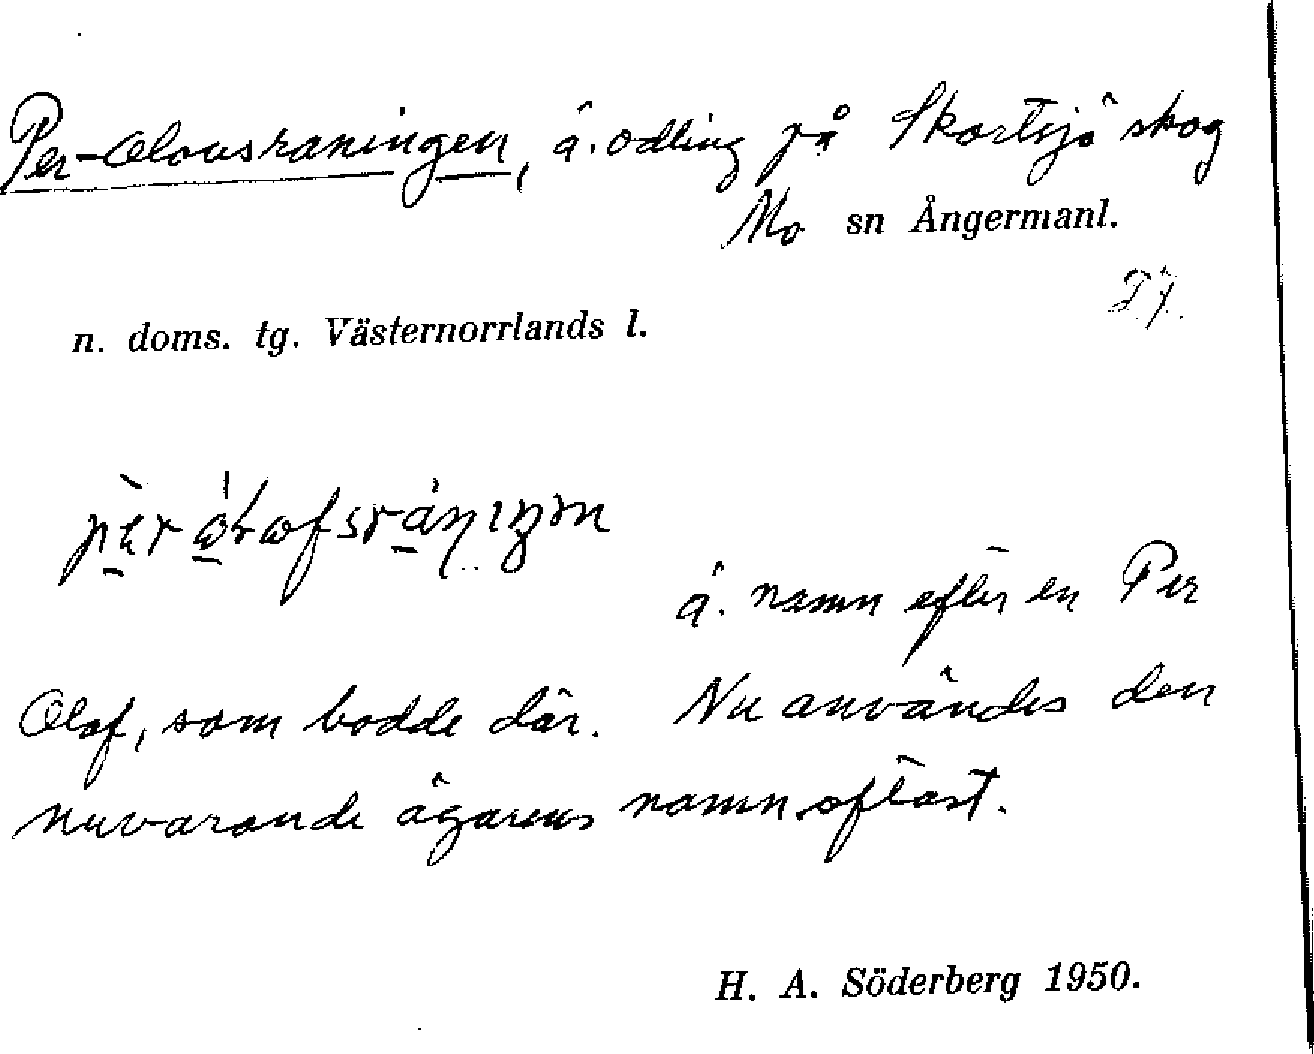 Per-Olovsraningen, ä. odling på Skortsjö skog
Mo sn Ångermanl.
27.
n. doms. tg. Västernorrlands l.
ä. namn efter en Per
Olof, som bodde där. Nu användes den
nuvarande ägarens namn oftast.
H. A. Söderberg 1950.